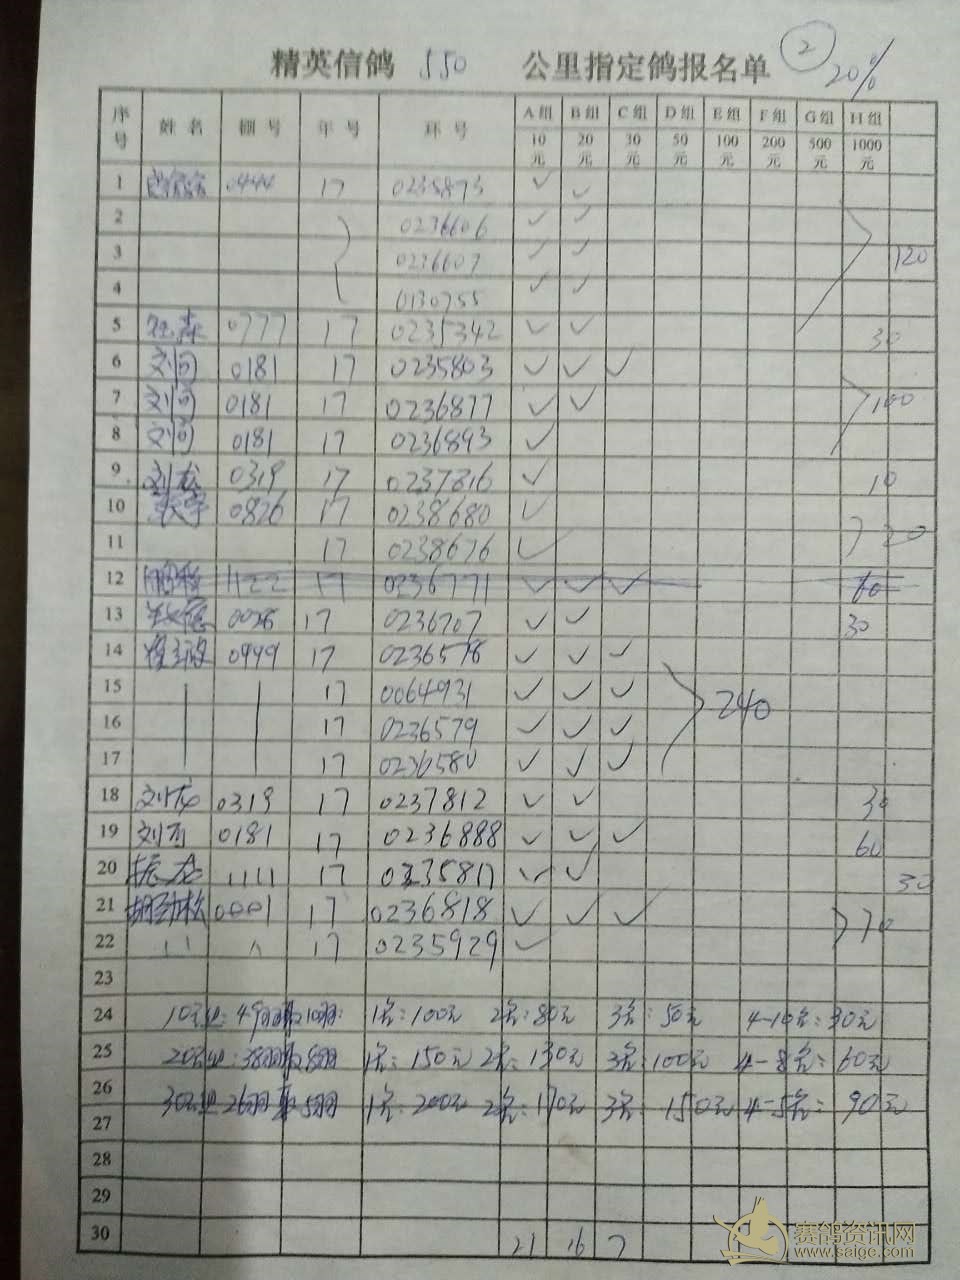 精英信鸽 550 公里指定鸽报名单 2 20%
序号 姓名 棚号 年号 环号 A组 10元 B组 20元 C组 30元 D组 50元 E组 100元 F组 200元 G组 500元 H组 1000元
1 0444 17 0235873 ✓ ✓
2 0236606 ✓ ✓
3 0236607 ✓ ✓ 120
4 0130755 ✓ ✓
5 0777 17 0235342 ✓ ✓ 30
6 刘可 0181 17 0235803 ✓ ✓ ✓
7 刘可 0181 17 0236877 ✓ ✓ 100
8 刘可 0181 17 0236893 ✓
9 刘龙 0319 17 0237816 ✓ 10
10 0826 17 0238680 ✓
11 17 0238676 ✓ 20
12 1122 17 0236771 ✓ ✓ ✓ 60
13 0026 17 0236707 ✓ ✓ 30
14 0449 17 0236578 ✓ ✓ ✓
15 17 0064931 ✓ ✓ ✓ 240
16 17 0236579 ✓ ✓ ✓
17 17 0236580 ✓ ✓ ✓
18 刘龙 0319 17 0237812 ✓ ✓ 30
19 刘可 0181 17 0236888 ✓ ✓ ✓ 60
20 振龙 1111 17 0235817 ✓ ✓ 30
21 胡劲松 0001 17 0236818 ✓ ✓ ✓ 70
22 17 0235929 ✓
23
24 10元组: 49羽取10羽: 1名: 100元 2名: 80元 3名: 50元 4-10名: 30元
25 20元组: 38羽取8羽 1名: 150元 2名: 130元 3名: 100元 4-8名: 60元
26 30元组 26羽取5羽 1名: 200元 2名: 170元 3名: 150元 4-5名: 90元
27
28
29
30 21 16 7
赛鸽资讯网
www.saige.com